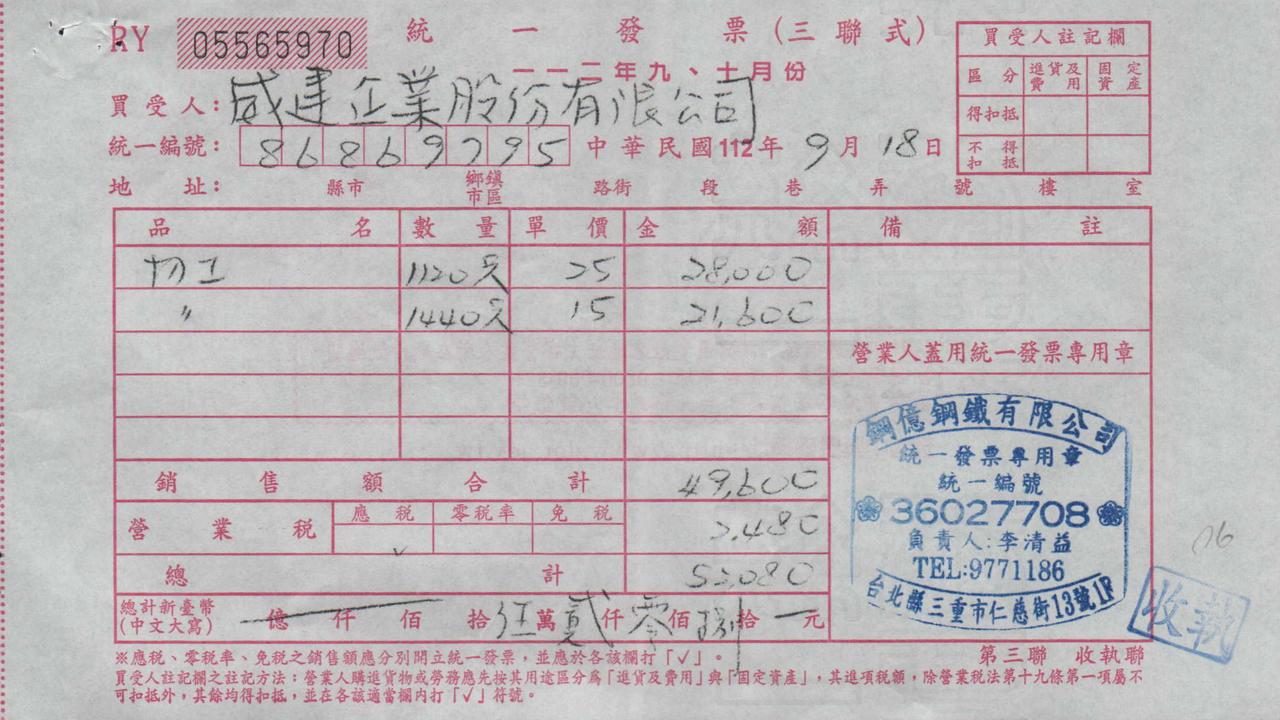 RY 05565970 統一發票(三聯式)
一一二年九、十月份
買受人: 威建企業股份有限公司
統一編號: 86869795 中華民國112年9月18日
地址: 縣市 鄉鎮市區 路街 段 巷 弄 號 樓 室
買受人註記欄
區分 進貨及費用 固定資產
得扣抵
不得扣抵
品名 數量 單價 金額 備註
切工 1120尺 25 28,000
〃 1440尺 15 21,600
營業人蓋用統一發票專用章
銷售額合計 49,600
營業稅 應稅 零稅率 免稅 2,480
ˇ
總計 52,080
總計新臺幣(中文大寫) 億仟佰拾伍萬貳仟零佰捌拾元
鋼億鋼鐵有限公司
統一發票專用章
統一編號
36027708
負責人:李清益
TEL:9771186
台北縣三重市仁慈街13號1F
收執
第三聯 收執聯
※應稅、零稅率、免稅之銷售額應分別開立統一發票,並應於各該欄打「✓」。
買受人註記欄之註記方法:營業人購進貨物或勞務應先按其用途區分為「進貨及費用」與「固定資產」,其進項稅額,除營業稅法第十九條第一項屬不
可扣抵外,其餘均得扣抵,並在各該適當欄內打「✓」符號。